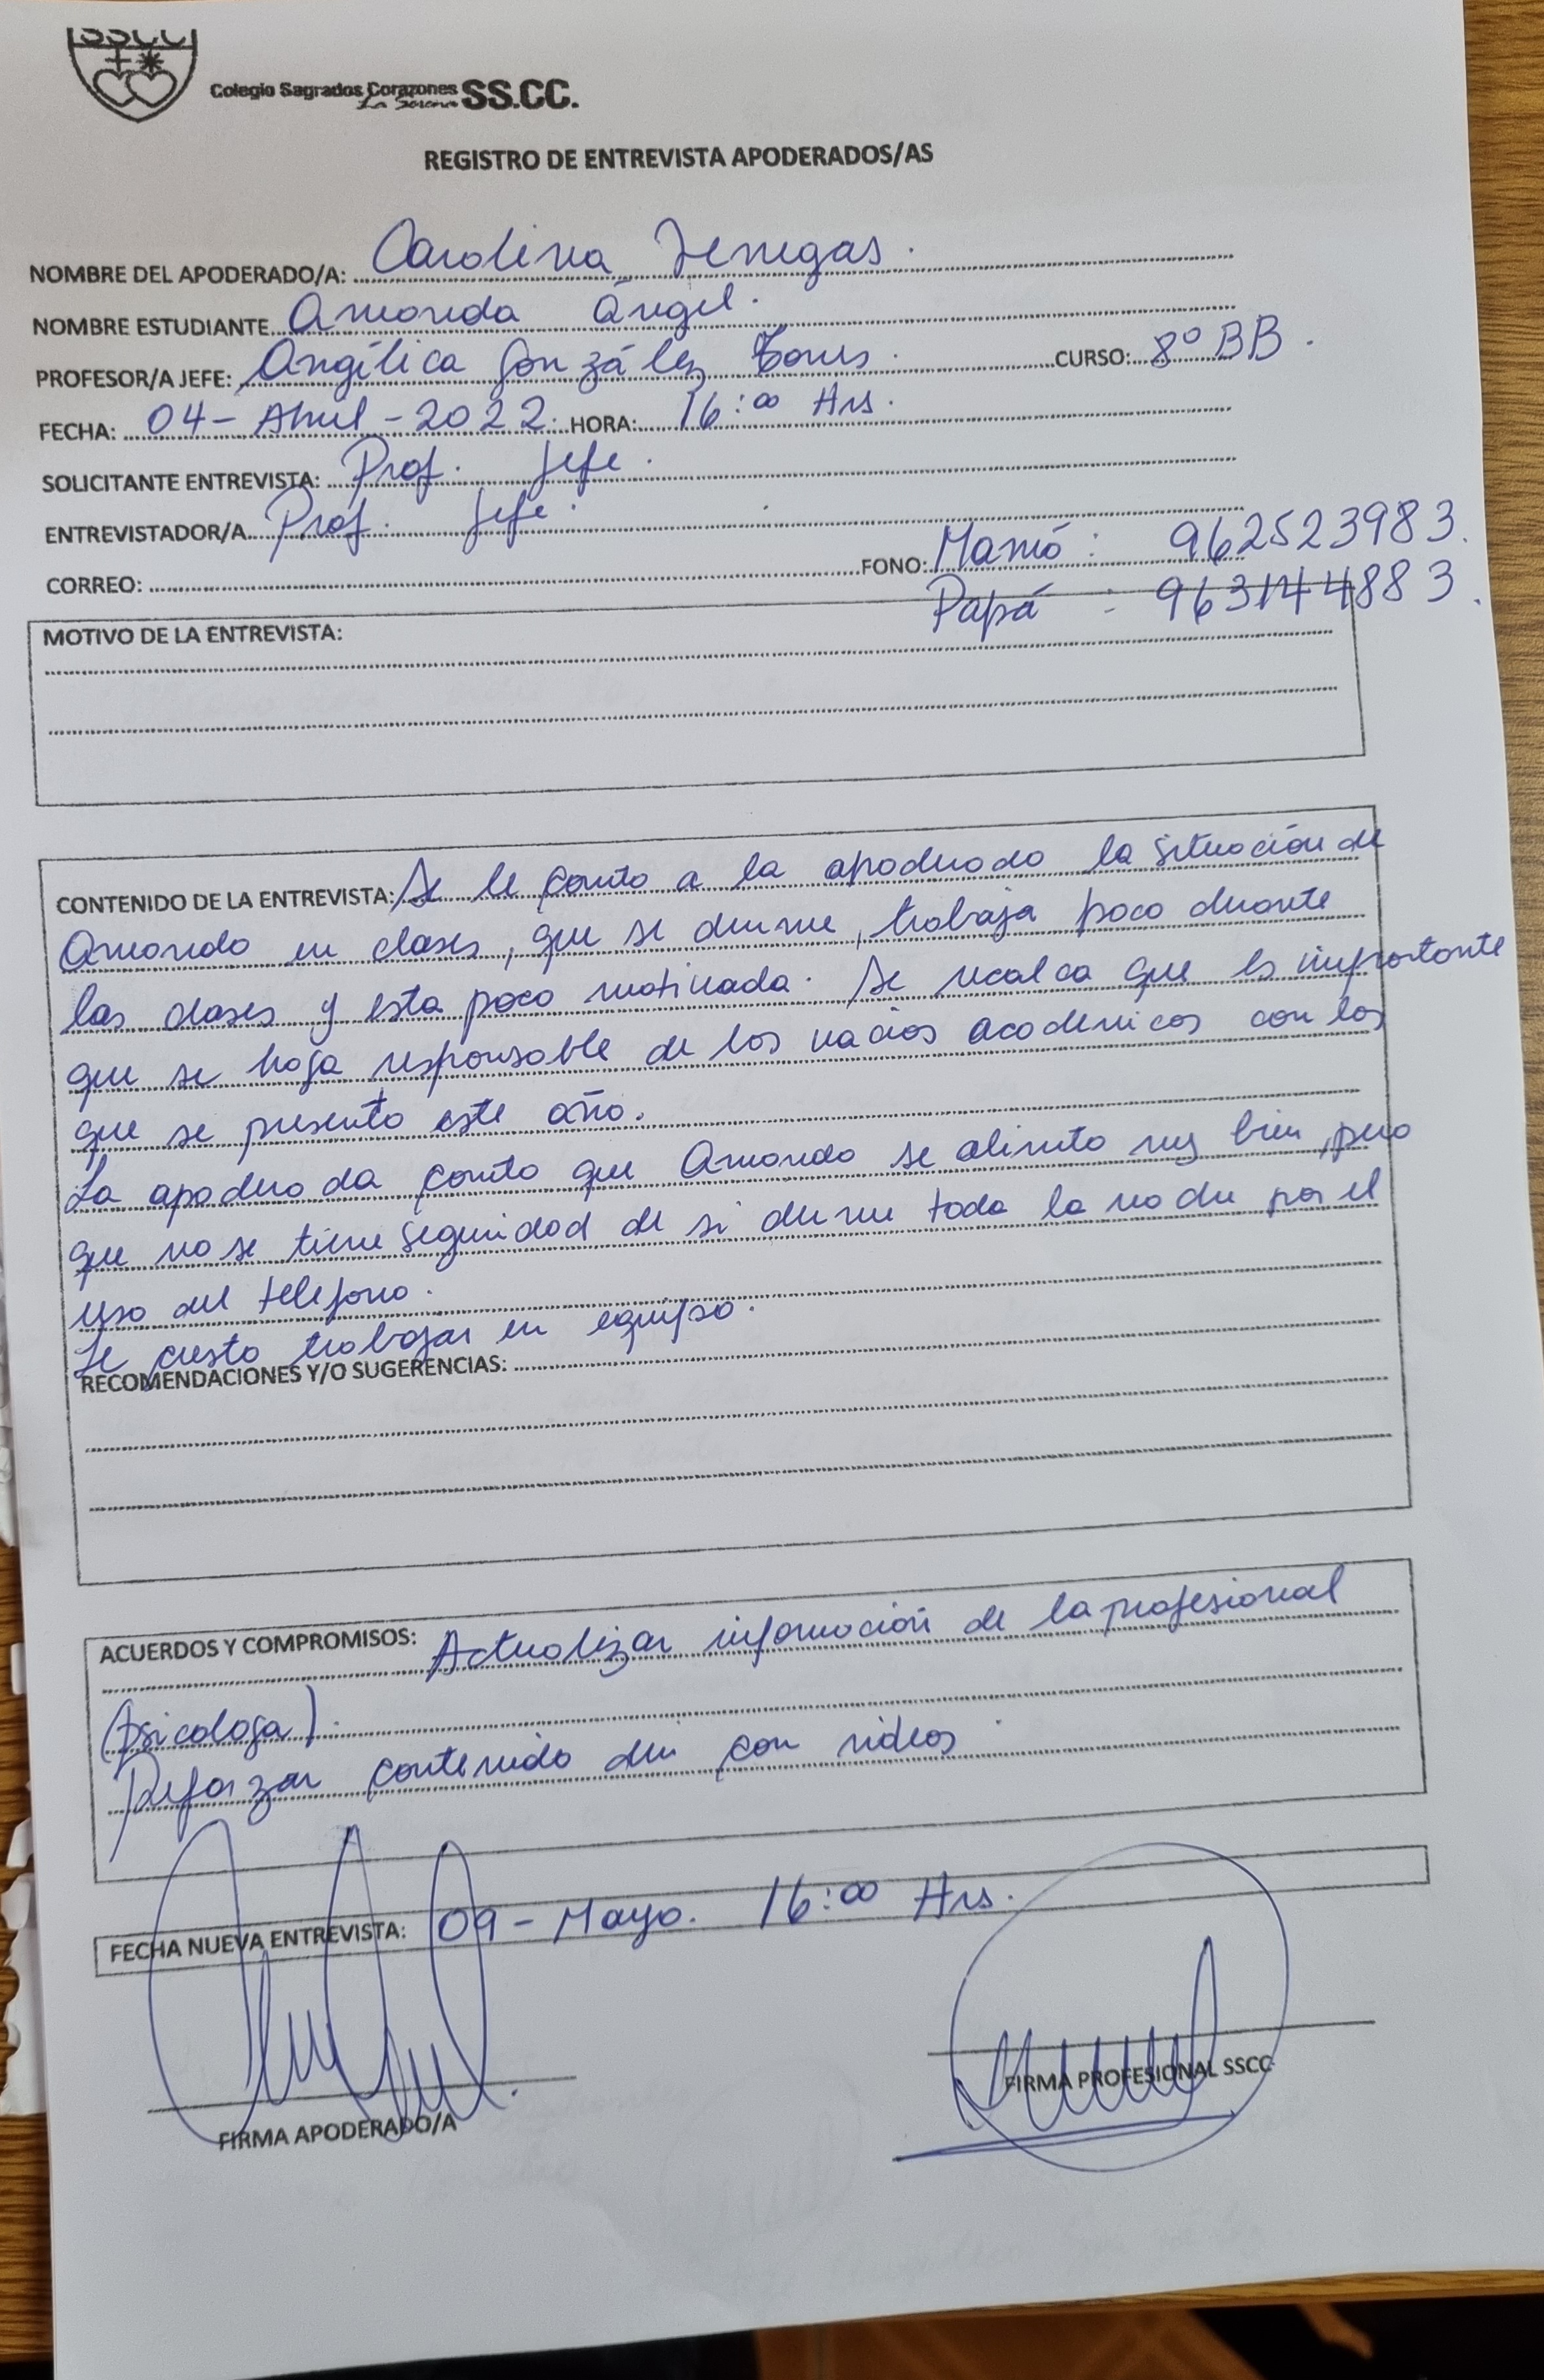 SSCC
Colegio Sagrados Corazones SS.CC.
La Serena
REGISTRO DE ENTREVISTA APODERADOS/AS
NOMBRE DEL APODERADO/A: Carolina Venegas.
NOMBRE ESTUDIANTE Amanda Ángel.
PROFESOR/A JEFE: Angélica González Torres. CURSO: 8° BB.
FECHA: 04-Abril-2022. HORA: 16:00 Hrs.
SOLICITANTE ENTREVISTA: Prof. Jefe.
ENTREVISTADOR/A Prof. Jefe.
CORREO: FONO: Mamá: 962523983.
Papá: 963144883.
MOTIVO DE LA ENTREVISTA:
CONTENIDO DE LA ENTREVISTA: Se le conto a la apoderado la situación de
Amanda en clases, que se duerme, trabaja poco durante
las clases y esta poco motivada. Se recalca que es importante
que se haga responsable de los vacios academicos con los
que se presento este año.
La apoderada conto que Amanda se alimenta muy bien, pero
que no se tiene seguridad de si duerme toda la noche por el
uso del telefono.
Le cuesta trabajar en equipo.
RECOMENDACIONES Y/O SUGERENCIAS:
ACUERDOS Y COMPROMISOS: Actualizar información de la profesional
(psicologa).
Reforzar contenido con videos
FECHA NUEVA ENTREVISTA: 09-Mayo. 16:00 Hrs.
FIRMA APODERADO/A
FIRMA PROFESIONAL SSCC